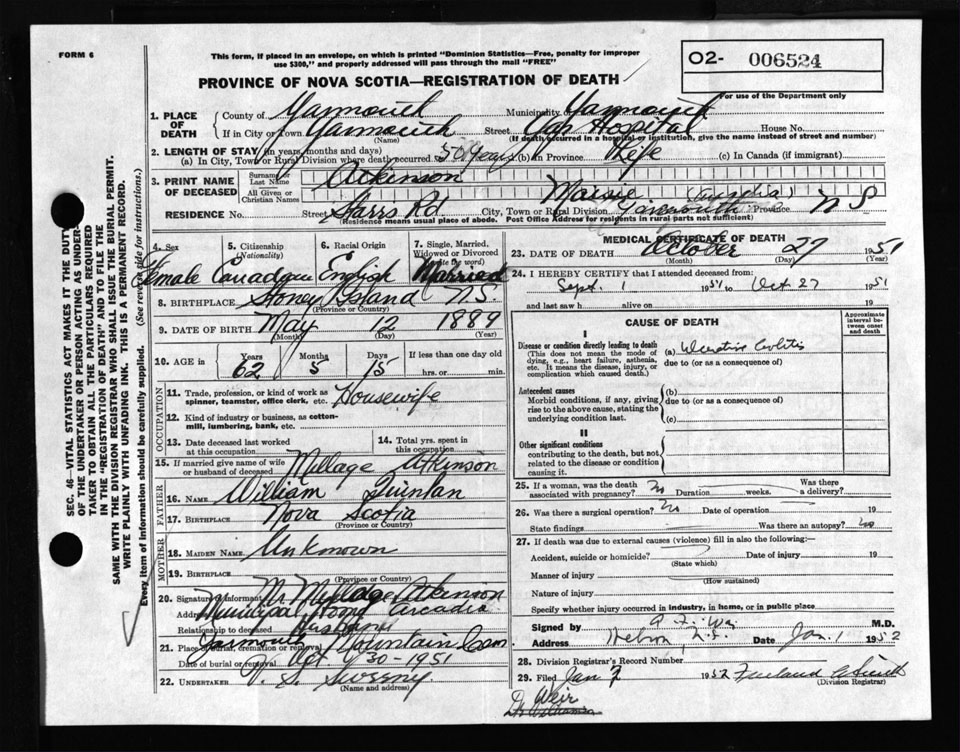 FORM 6
This form, if placed in an envelope, on which is printed "Dominion Statistics—Free, penalty for improper
use $300," and properly addressed will pass through the mail "FREE"
O2- 006524
PROVINCE OF NOVA SCOTIA—REGISTRATION OF DEATH
For use of the Department only
1. PLACE OF DEATH
County of Yarmouth Municipality Yarmouth
If in City or Town Yarmouth Street Yar Hospital House No.
(Name) (If death occurred in a hospital or institution, give the name instead of street and number)
2. LENGTH OF STAY (in years, months and days)
(a) In City, Town or Rural Division where death occurred 50 Years (b) in Province Life (c) In Canada (if immigrant)
3. PRINT NAME OF DECEASED
Surname or Last Name Atkinson
All Given or Christian Names Maisie
RESIDENCE No. Street Starrs Rd. City, Town or Rural Division Yarmouth Province N S
(Residence means usual place of abode. Post Office Address for residents in rural parts not sufficient)
4. Sex Female
5. Citizenship (Nationality) Canadian
6. Racial Origin English
7. Single, Married, Widowed or Divorced (write the word) Married
8. BIRTHPLACE Stoney Island N.S.
(Province or Country)
9. DATE OF BIRTH May 12 1889
(Month) (Day) (Year)
10. AGE in Years 62 Months 5 Days 15 If less than one day old
hrs. or min.
OCCUPATION
11. Trade, profession, or kind of work as spinner, teamster, office clerk, etc. Housewife
12. Kind of industry or business, as cotton-mill, lumbering, bank, etc.
13. Date deceased last worked at this occupation
14. Total yrs. spent in this occupation
15. If married give name of wife or husband of deceased Millage Atkinson
FATHER
16. NAME William Quinlan
17. BIRTHPLACE Nova Scotia
(Province or Country)
MOTHER
18. MAIDEN NAME Unknown
19. BIRTHPLACE
(Province or Country)
20. Signature of informant Mr Millage Atkinson
Address Municipal Home Arcadia
Relationship to deceased Husband
21. Place of burial, cremation or removal Yarmouth Mountain Cem
Date of burial or removal Oct 30-1951
22. UNDERTAKER V. S. Sweeny
(Name and address)
MEDICAL CERTIFICATE OF DEATH
23. DATE OF DEATH October 27 1951
(Month) (Day) (Year)
24. I HEREBY CERTIFY that I attended deceased from
Sept. 1 1951 to Oct 27 1951
and last saw h alive on 19
CAUSE OF DEATH
Approximate interval between onset and death
I
Disease or condition directly leading to death
(This does not mean the mode of dying, e.g., heart failure, asthenia, etc. It means the disease, injury, or complication which caused death.)
(a) Ulcerative Colitis
due to (or as a consequence of)
Antecedent causes
Morbid conditions, if any, giving rise to the above cause, stating the underlying condition last.
(b)
due to (or as a consequence of)
(c)
II
Other significant conditions
contributing to the death, but not related to the disease or condition causing it.
25. If a woman, was the death associated with pregnancy? No Duration weeks. Was there a delivery?
26. Was there a surgical operation? No Date of operation 19
State findings Was there an autopsy? No
27. If death was due to external causes (violence) fill in also the following:—
Accident, suicide or homicide? Date of injury 19
(State which)
Manner of injury
(How sustained)
Nature of injury
Specify whether injury occurred in industry, in home, or in public place
Signed by M.D.
Address Hebron, N.S. Date Jan. 1 1952
28. Division Registrar's Record Number
29. Filed Jan 2 1952
(Division Registrar)
Dr Weir
SEC. 46—VITAL STATISTICS ACT MAKES IT THE DUTY
OF THE UNDERTAKER OR PERSON ACTING AS UNDER-
TAKER TO OBTAIN ALL THE PARTICULARS REQUIRED
IN THE "REGISTRATION OF DEATH" AND TO FILE THE
SAME WITH THE DIVISION REGISTRAR WHO SHALL ISSUE THE BURIAL PERMIT.
WRITE PLAINLY WITH UNFADING INK. THIS IS A PERMANENT RECORD.
Every item of information should be carefully supplied. (See reverse side for instructions.)